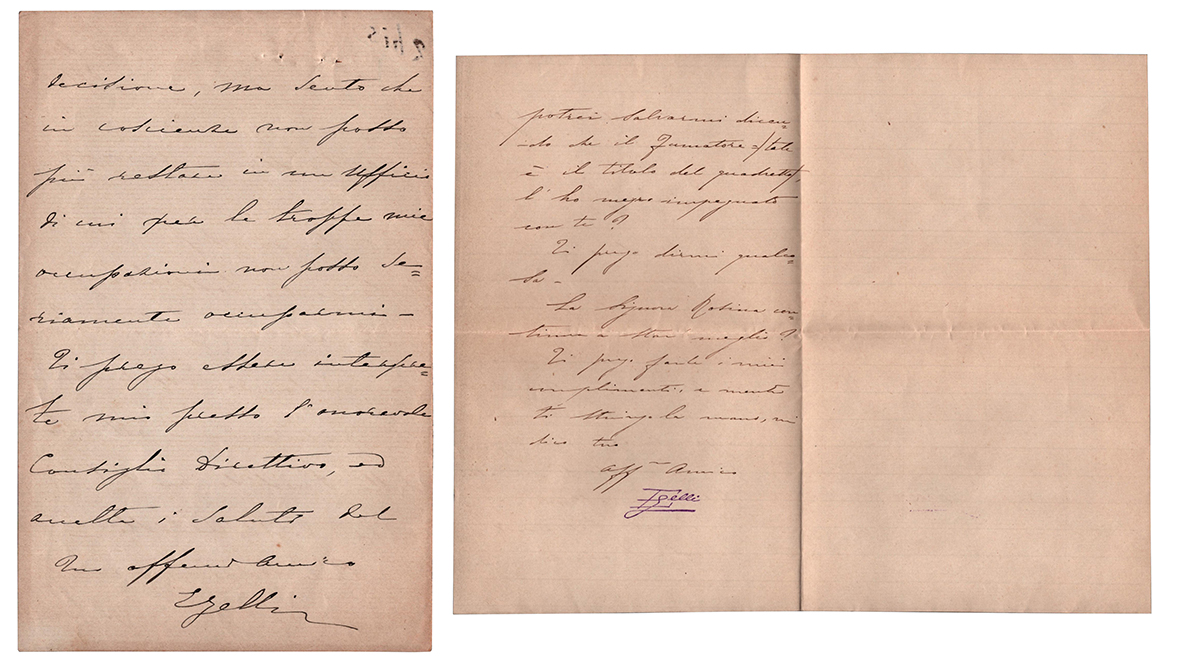 2 bis
decisione, ma sento che
in coscienza non posso
più restare in un Ufficio
di cui per le troppe mie
occupazioni non posso se=
riamente occuparmi —
Ti prego essere interpre=
te mio presso l'onorevole
Consiglio Direttivo, ed
accetta i saluti del
tuo affmo Amico
Gelli
potrei salvarmi dicen-
-do che il Fumatore =/tale
è il titolo del quadretto/
l'ho impegnato
con te?
Ti prego dirmi qualco=
sa —
La Signora Rosina con-
tinua a star meglio?
Ti prego farle i miei
complimenti, e mentre
ti stringo la mano, mi
dico tuo
affmo Amico
Gelli